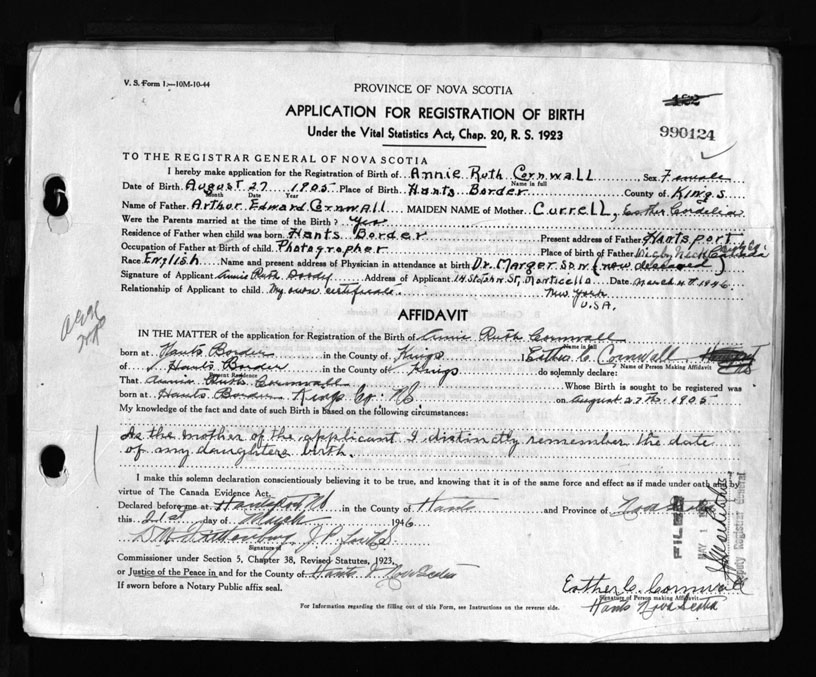 V. S. Form 1.—10M-10-44
PROVINCE OF NOVA SCOTIA
APPLICATION FOR REGISTRATION OF BIRTH
990124
Under the Vital Statistics Act, Chap. 20, R. S. 1923
TO THE REGISTRAR GENERAL OF NOVA SCOTIA
I hereby make application for the Registration of Birth of Annie Ruth Cornwall Sex Female
Name in full
Date of Birth August 27 1905 Place of Birth Hants Border County of Kings
Month Date Year
Name of Father Arthur Edward Cornwall MAIDEN NAME of Mother Currell, Esther Cordelia
Were the Parents married at the time of the Birth? Yes
Residence of Father when child was born Hants Border Present address of Father Hantsport
Occupation of Father at Birth of child Photographer Place of birth of Father Digby Neck Digby Co. Canada
Race English Name and present address of Physician in attendance at birth Dr. Margerson (now deceased)
Signature of Applicant Annie Ruth Address of Applicant 14 St. John St, Monticello Date March 4th 1946
Relationship of Applicant to child My own certificate. New York
U.S.A.
AFFIDAVIT
IN THE MATTER of the application for Registration of the Birth of Annie Ruth Cornwall
Name in full
born at Hants Border in the County of Kings I Esther C. Cornwall
Name of Person Making Affidavit
of Hants Border in the County of Kings do solemnly declare:
Present Residence
That Annie Ruth Cornwall Whose Birth is sought to be registered was
born at Hants Border Kings Co. NS on August 27th 1905
My knowledge of the fact and date of such Birth is based on the following circumstances:
As the mother of the applicant I distinctly remember the date
of my daughters birth.
I make this solemn declaration conscientiously believing it to be true, and knowing that it is of the same force and effect as if made under oath and by
virtue of The Canada Evidence Act.
Declared before me at Hantsport NS in the County of Hants and Province of Nova Scotia
this 21st day of March 1946
Signature of
Commissioner under Section 5, Chapter 38, Revised Statutes, 1923,
or Justice of the Peace in and for the County of Hants Nova Scotia
If sworn before a Notary Public affix seal.
FILED
Deputy Registrar General
Esther C. Cornwall
Signature of Person making Affidavit
Hants Nova Scotia
For Information regarding the filling out of this Form, see Instructions on the reverse side.